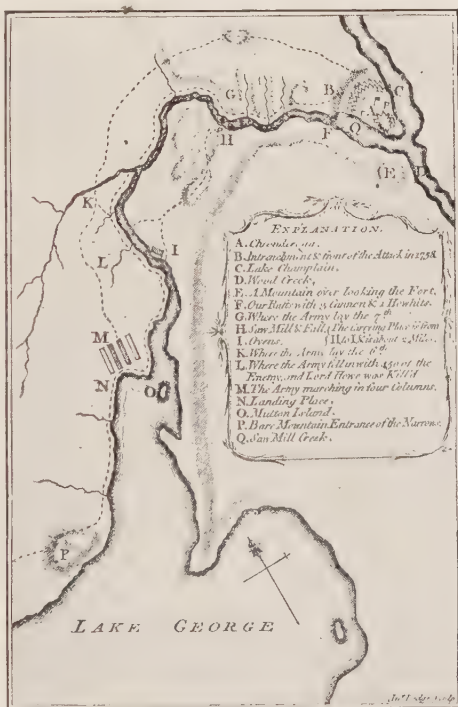 G
B
C
H
F
Q
E
D
K
L
I
M
N
O
P
EXPLANATION.
A. Cheonderoga.
B. Intrenchment & front of the Attack in 1758.
C. Lake Champlain.
D. Wood Creek.
E. A Mountain over looking the Fort.
F. Our Battr with 3 Cannon & 1 Howitz.
G. Where the Army lay the 7th
H. Saw Mill & Fall, The Carrying Place is from
I. Ovens. H to I. about 2 Miles.
K. Where the Army lay the 6th
L. Where the Army fell in with 450 of the
Enemy, and Lord Howe was Kill'd
M. The Army marching in four Columns.
N. Landing Place.
O. Mutton Island.
P. Bare Mountain, Entrance of the Narrows.
Q. Saw Mill Creek.
LAKE GEORGE
Jno. Lodge Sculp.